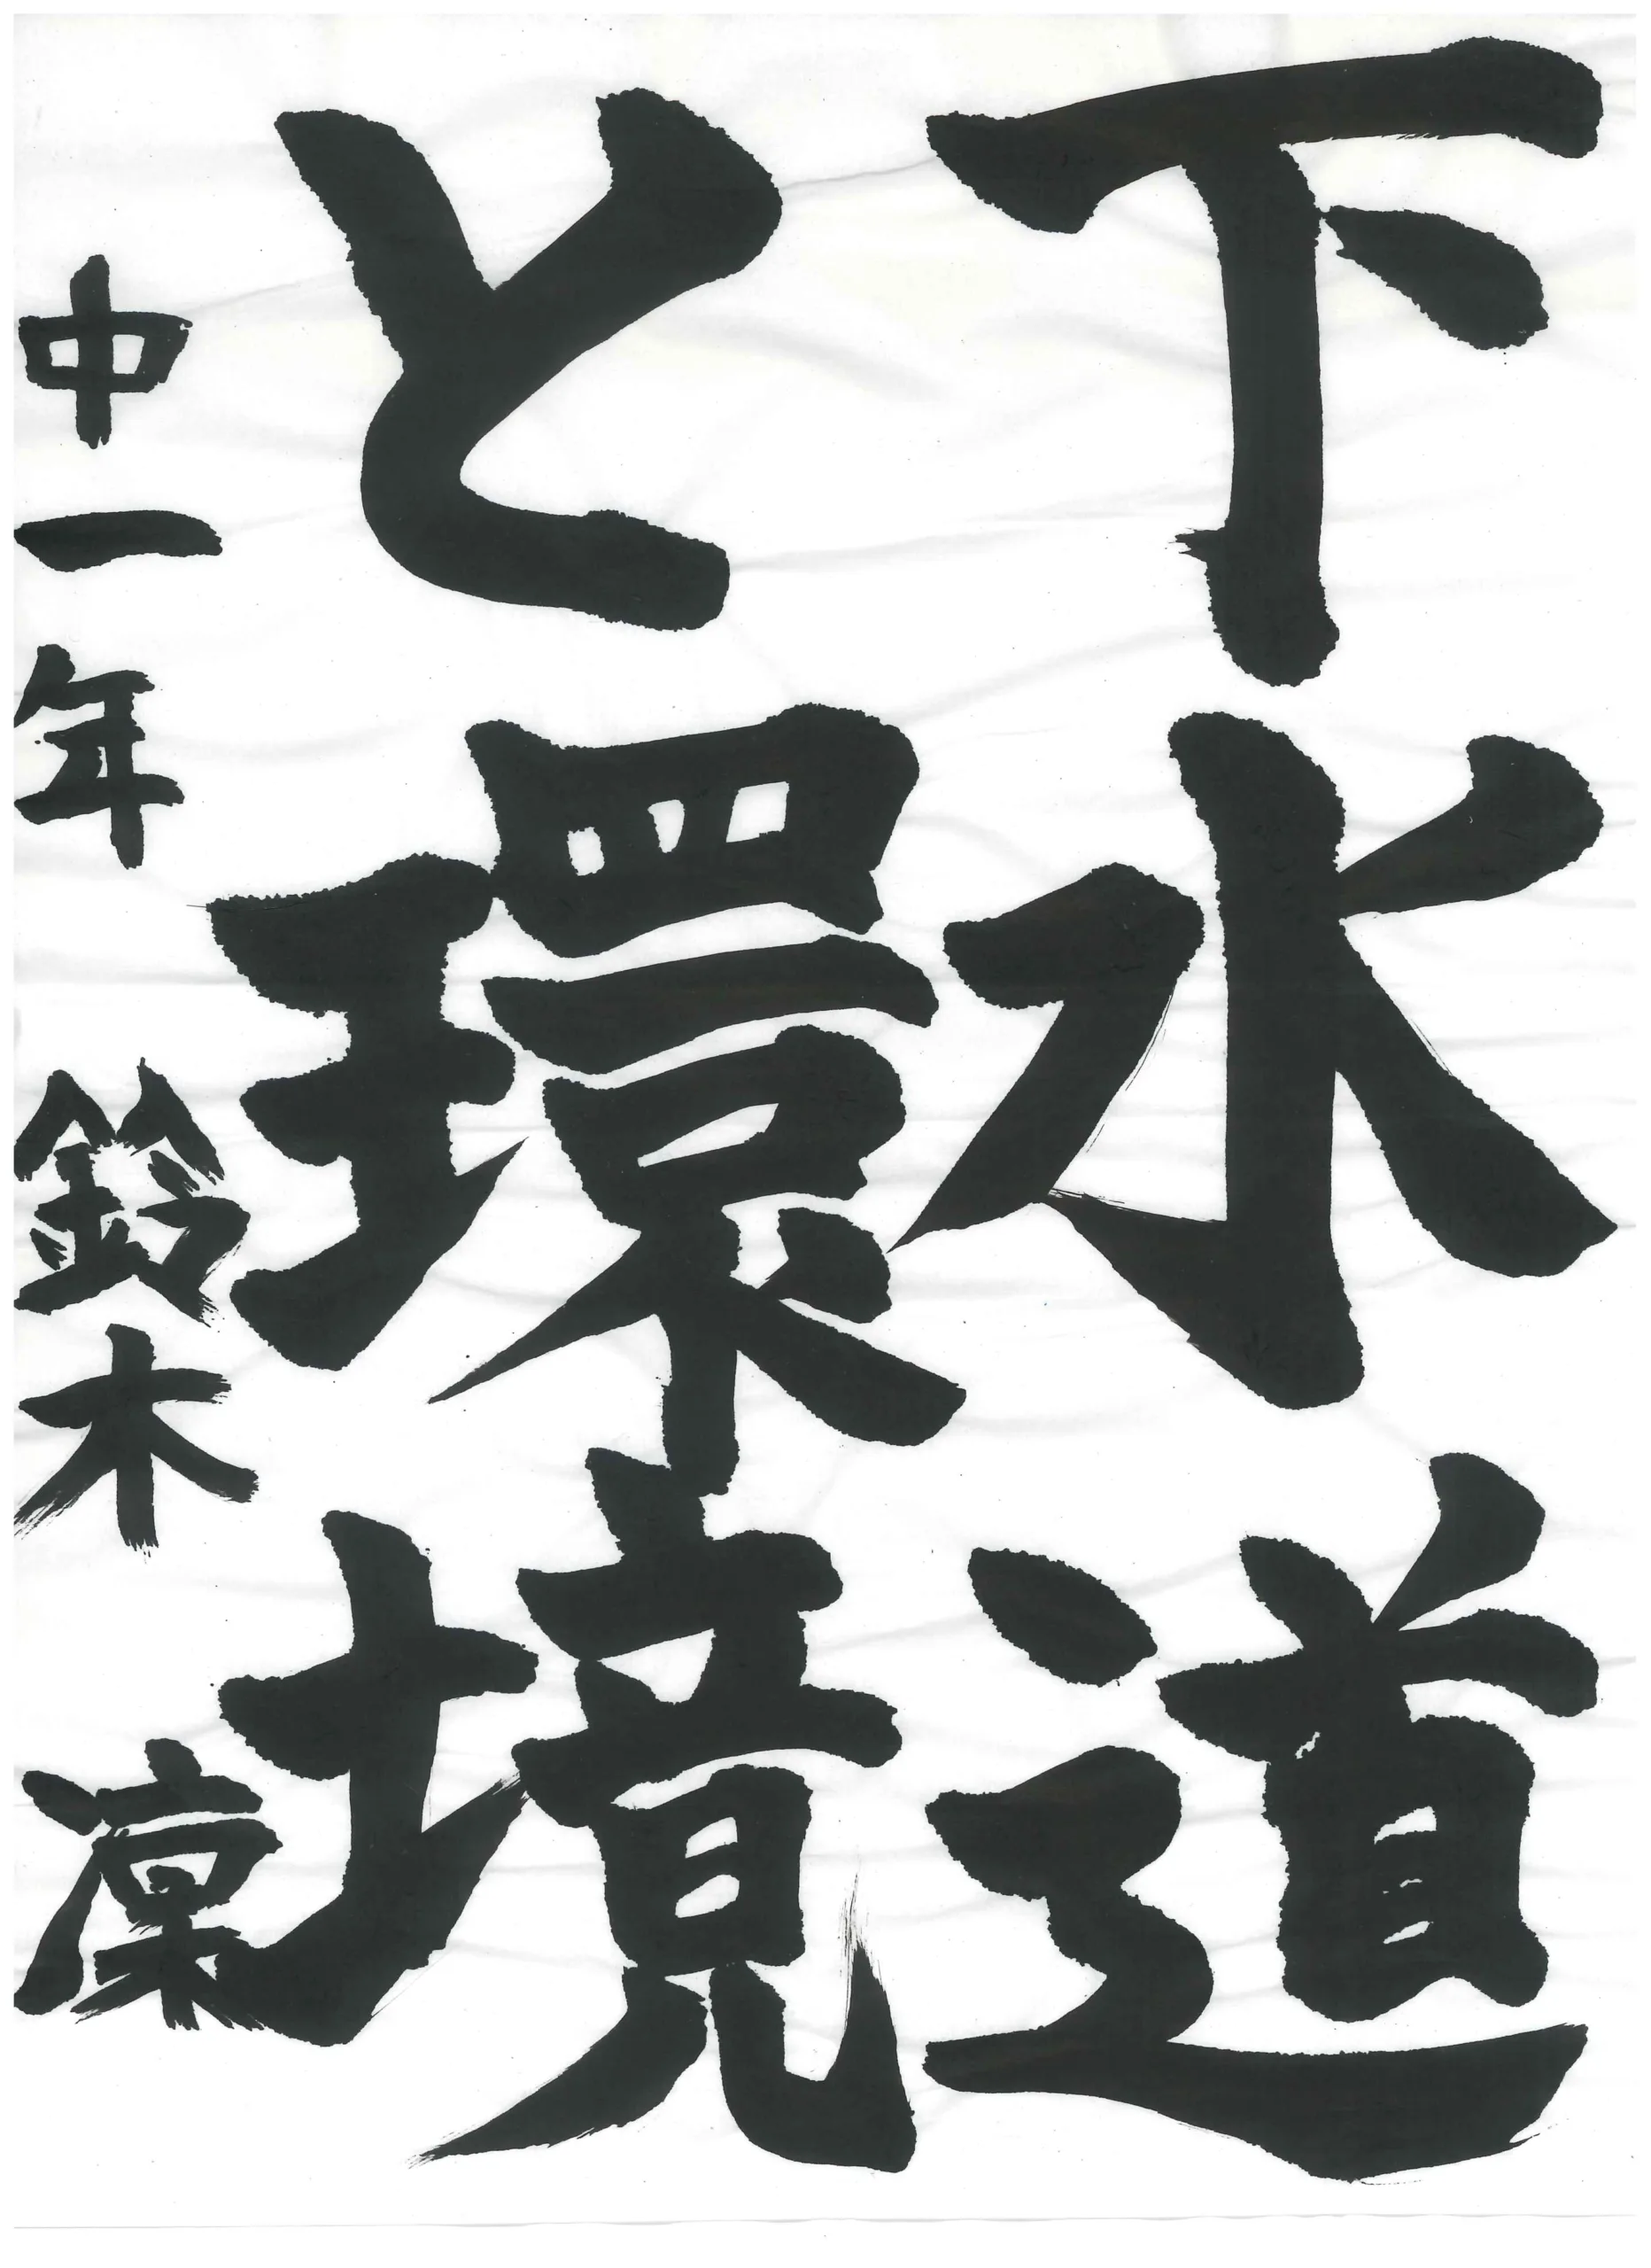 下水道
と環境
中一年 鈴木凜